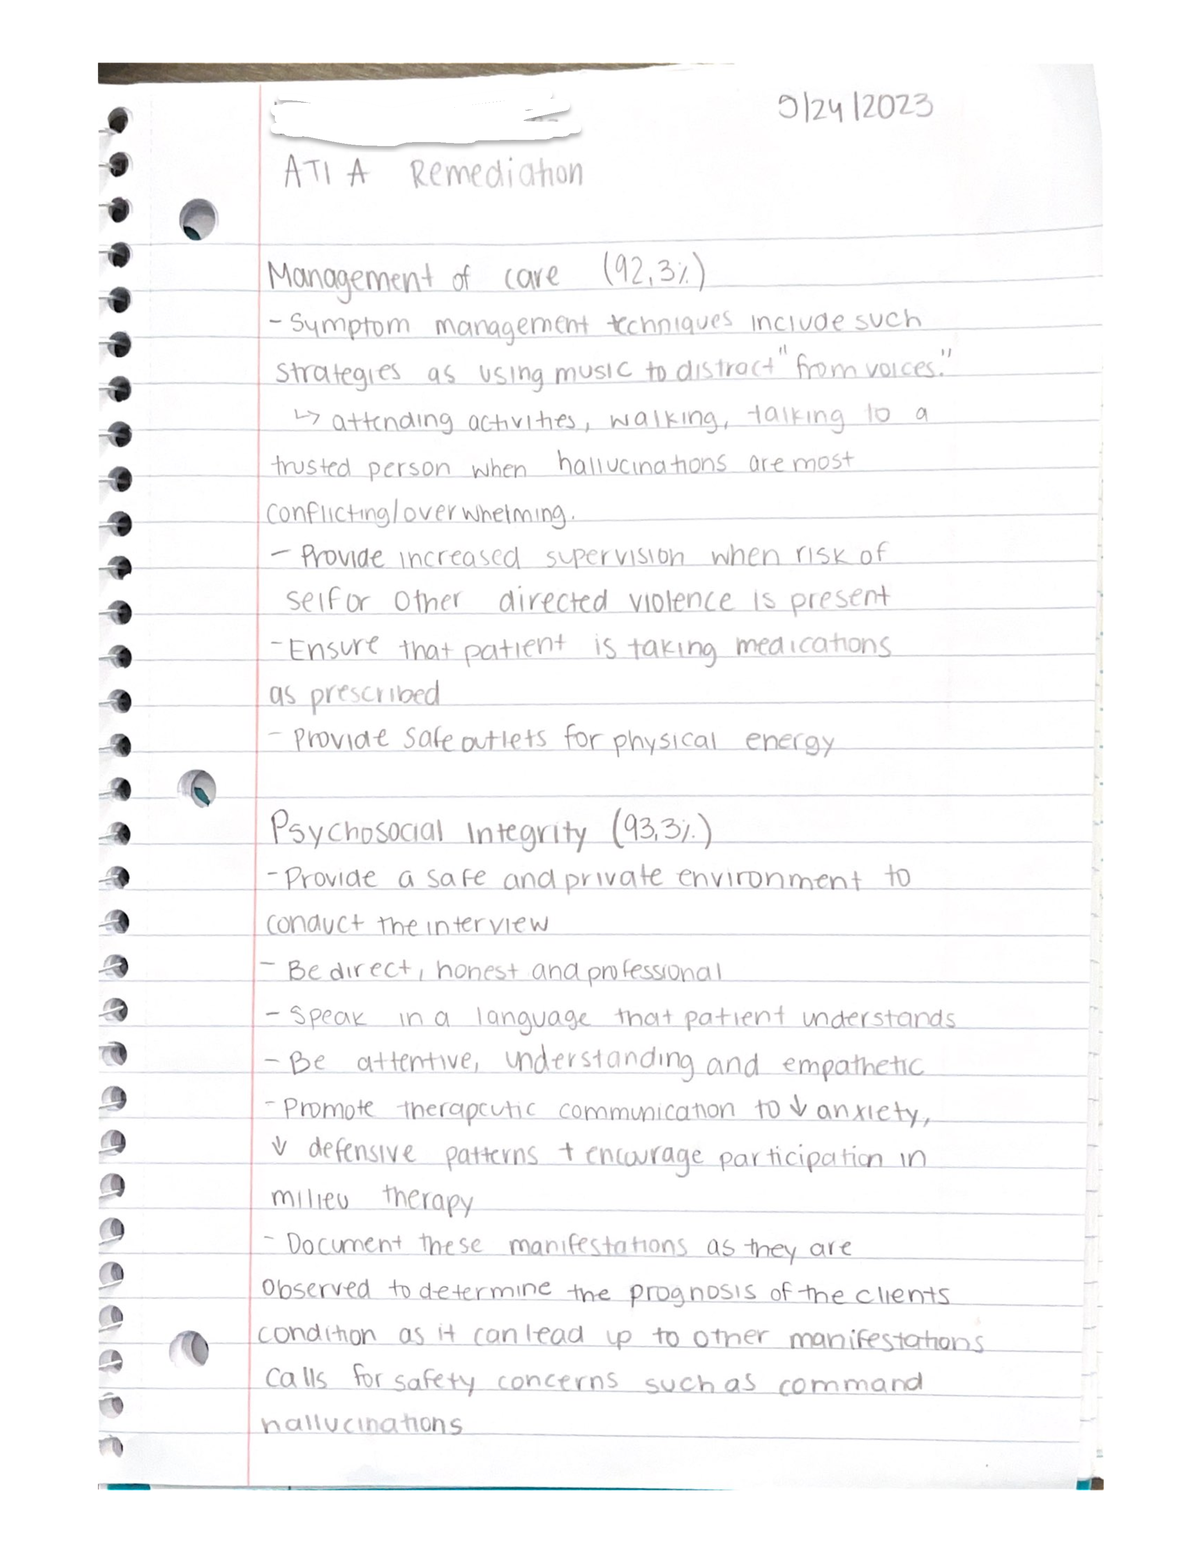 9/24/2023
ATI A Remediation
Management of care (92,3%)
- Symptom management techniques include such
strategies as using music to distract "from voices."
↳ attending activities, walking, talking to a
trusted person when hallucinations are most
conflicting/overwhelming.
- Provide increased supervision when risk of
self or other directed violence is present
- Ensure that patient is taking medications
as prescribed
- Provide safe outlets for physical energy
Psychosocial Integrity (93,3%)
- Provide a safe and private environment to
conduct the interview
- Be direct, honest and professional
- Speak in a language that patient understands
- Be attentive, understanding and empathetic
- Promote therapeutic communication to ↓ anxiety,
↓ defensive patterns + encourage participation in
milieu therapy
- Document these manifestations as they are
observed to determine the prognosis of the clients
condition as it can lead up to other manifestations
calls for safety concerns such as command
hallucinations